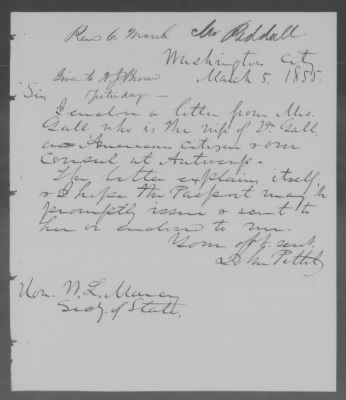 Rec 6 March Mr Riddall
Washington City
March 5. 1855.
Given to
Yesterday —
Sir
I enclose a letter from Mrs.
Gall who is the wife of Gall,
an American citizen & our
Consul at Antwerp.
The letter explains itself
& I hope the Passport may be
promptly issued & sent to
her or enclosed to me.
Your obt. servt.
Hon. W. L. Marcy
Secy. of State.